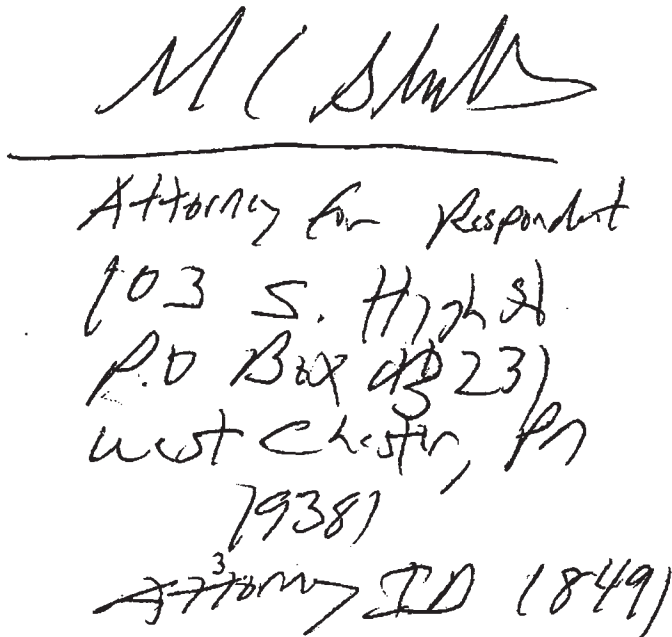 Attorney for Respondent
103 S. High St
P.O Box 231
West Chester, Pa
19381
3
Attorney ID 18491